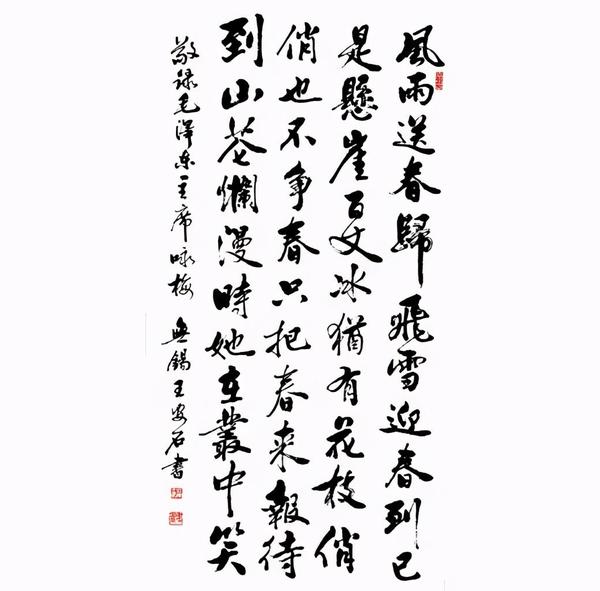 風雨送春歸飛雪迎春到已
是懸崖百丈冰猶有花枝俏
俏也不争春只把春来報待
到山花爛漫時她在叢中笑
敬録毛泽东主席咏梅 無錫王安石書